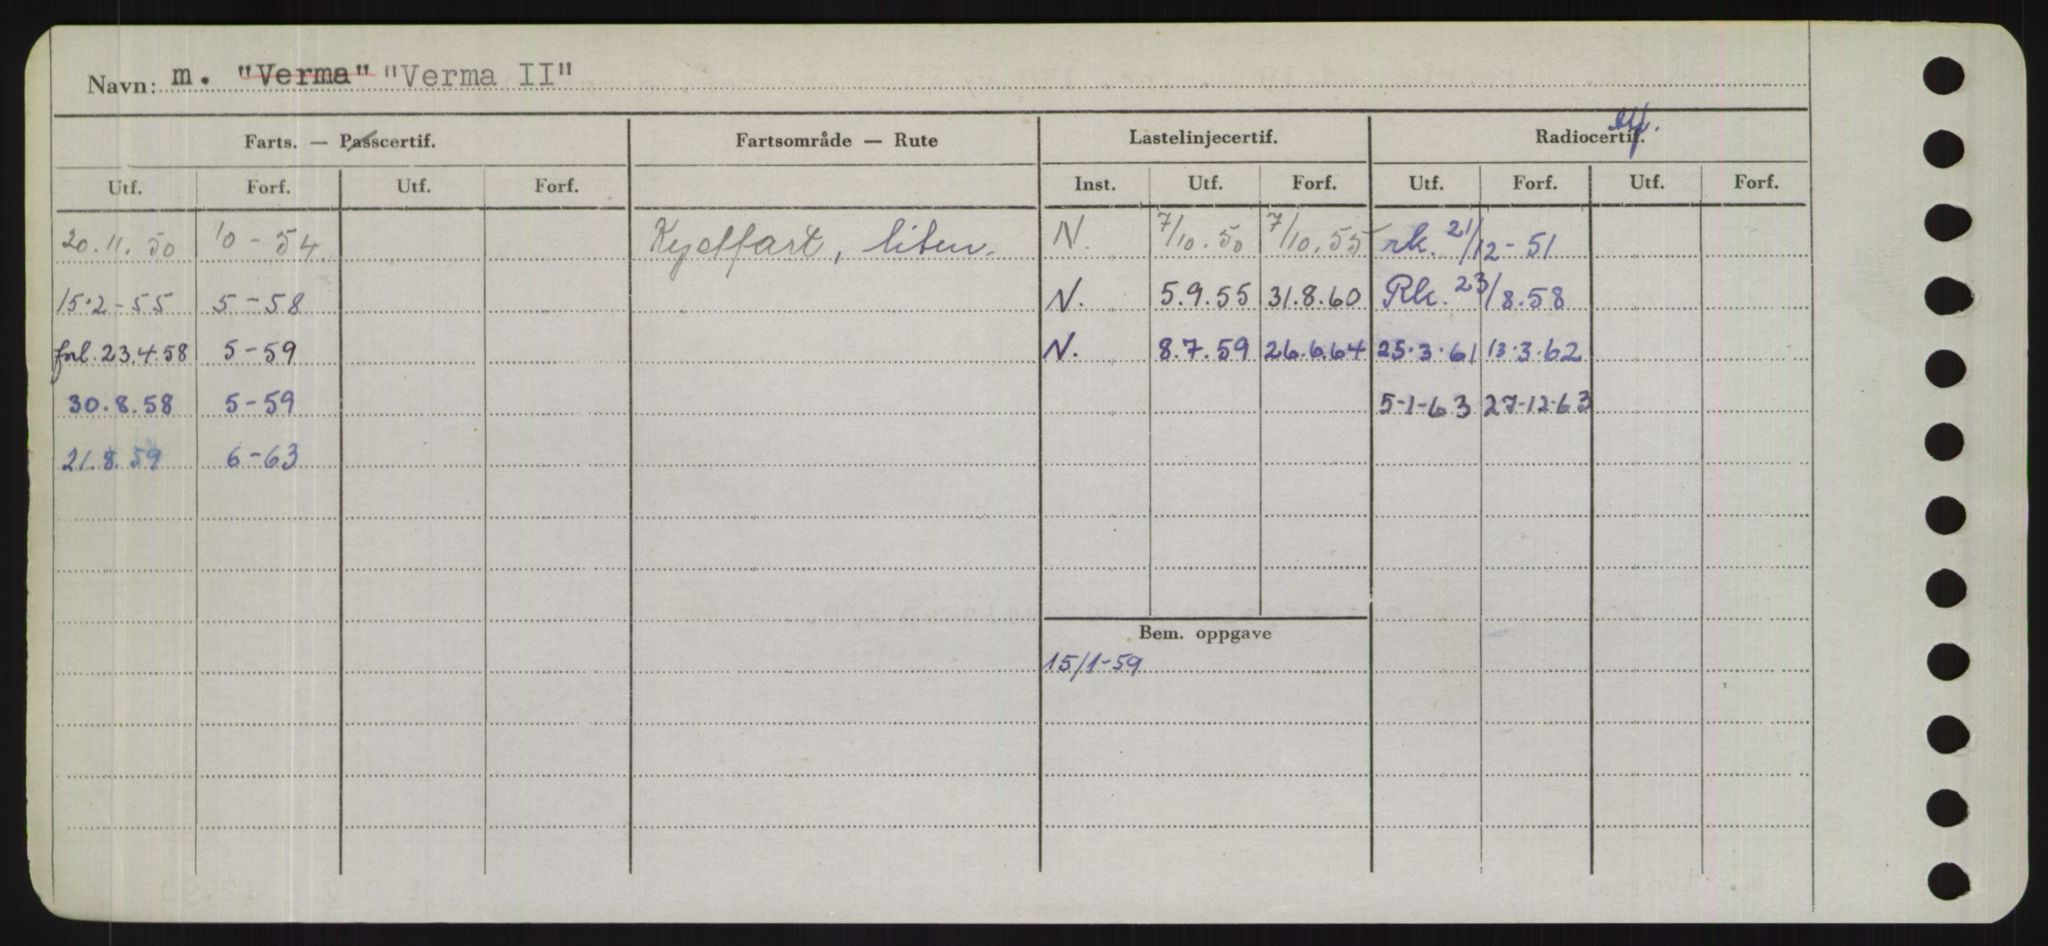 Navn: m. "Verma" "Verma II"
Farts. — Passcertif. Fartsområde — Rute Lastelinjecertif. Radiocertif.
Utf. Forf. Utf. Forf. Inst. Utf. Forf. Utf. Forf. Utf. Forf.
20.11.50 10-54 Kystfart, liten. N. 7/10.50 7/10.55 rk. 21/12-51
15.2-55 5-58 N. 5.9.55 31.8.60 Rk. 23/8.58
forl. 23.4.58 5-59 N. 8.7.59 26.6.64 25.3.61 13.3.62
30.8.58 5-59 5-1-63 27-12-63
21.8.59 6-63
Bem. oppgave
15/1-59